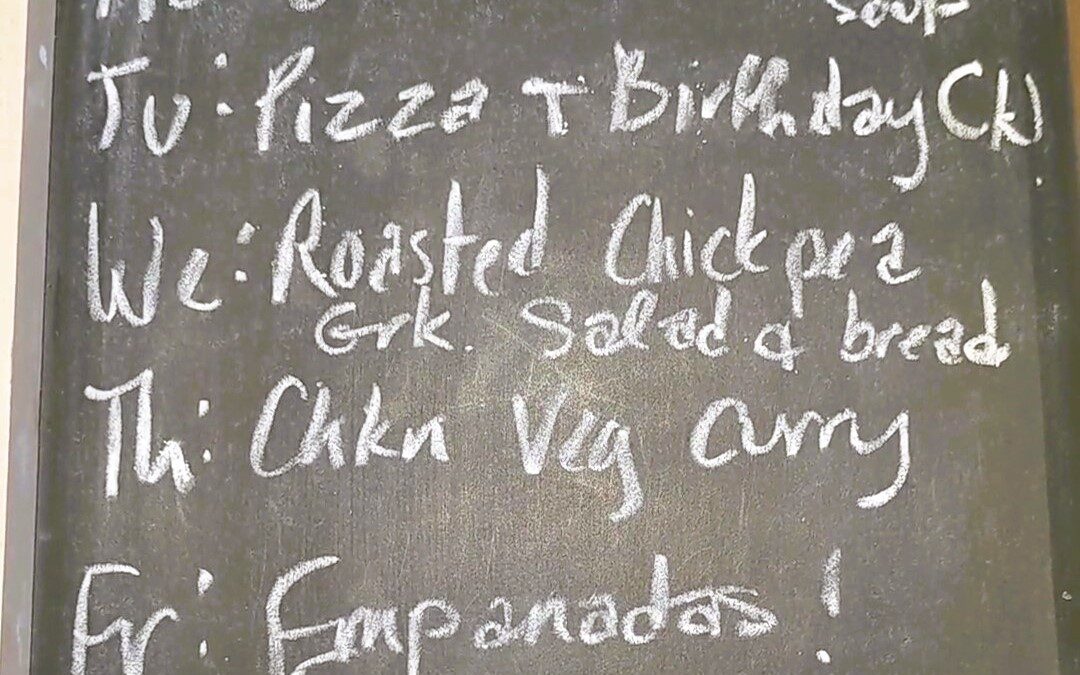 soup
Tu: Pizza + Birthday (K)
We: Roasted Chickpea
Grk. Salad & bread
Th: Chkn Veg Curry
Fr: Empanadas!